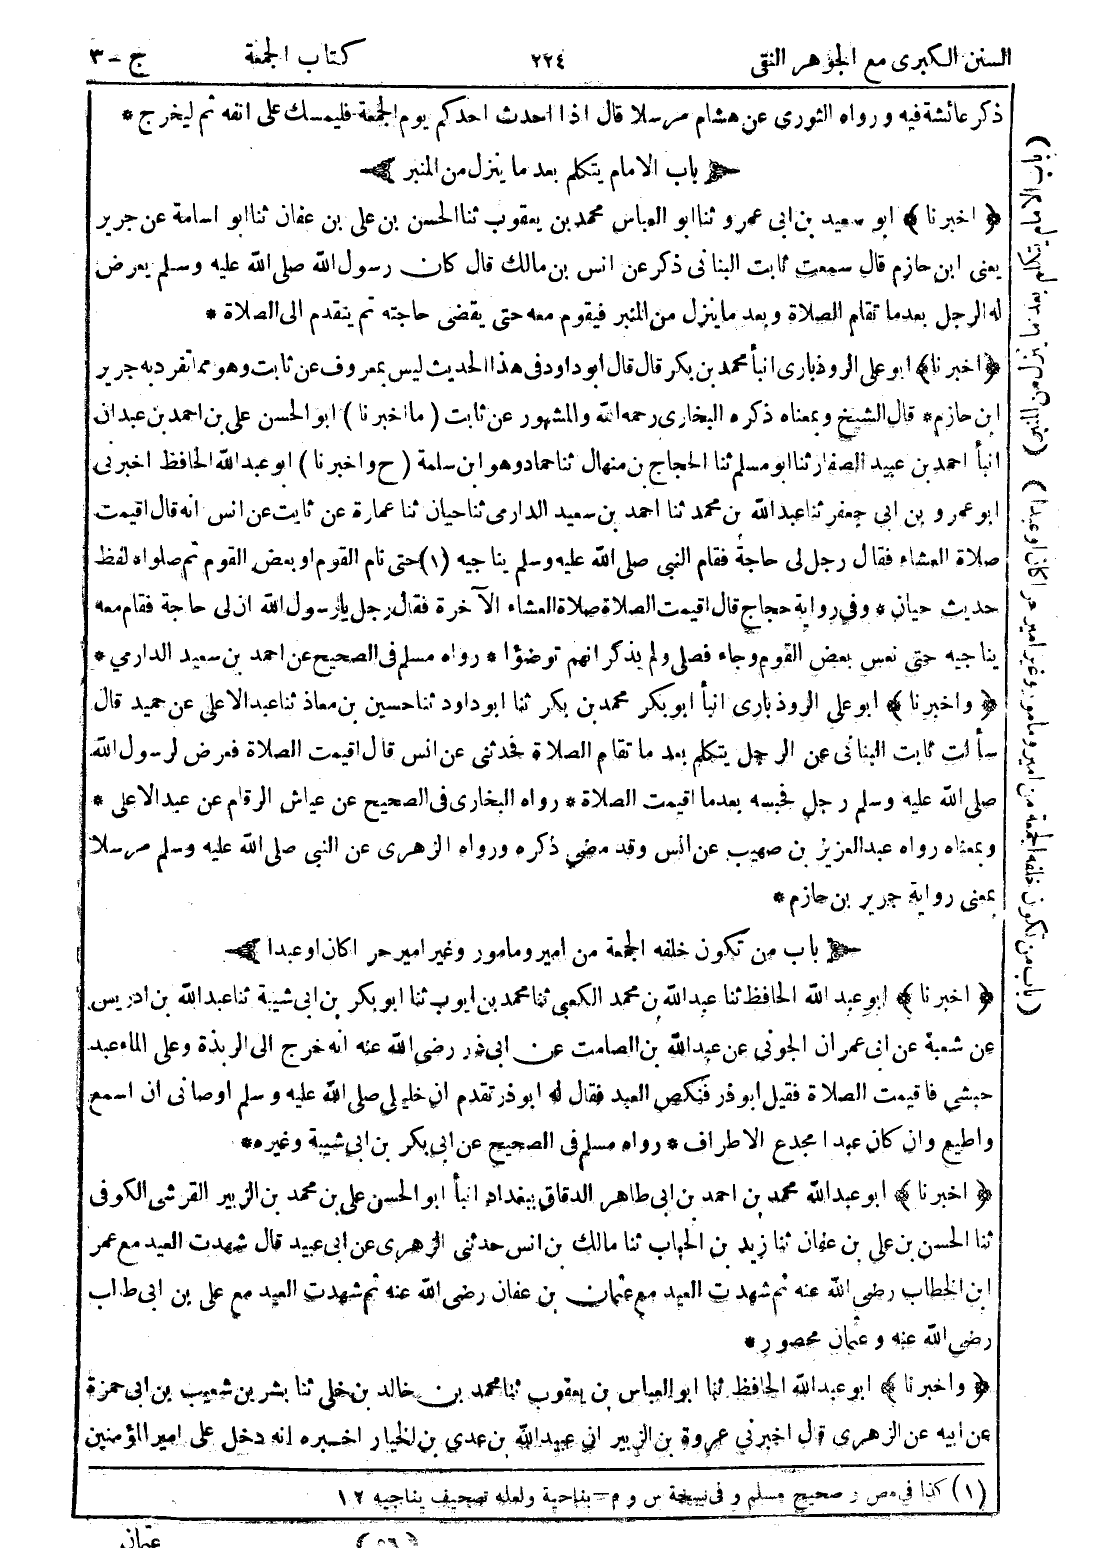 السنن الكبرى مع الجوهر النقى ٢٢٤ كتاب الجمعة ج - ٣
ذكر عائشة فيه و رواه الثورى عن هشام مرسلا قال اذا احدث احدكم يوم الجمعة فليمسك على انفه ثم ليخرج *
باب الامام يتكلم بعد ما ينزل من المنبر
﴿ اخبرنا ﴾ ابو سعيد بن ابى عمرو ثنا ابو العباس محمد بن يعقوب ثنا الحسن بن على بن عفان ثنا ابو اسامة عن جرير
يعنى ابن حازم قال سمعت ثابت البنانى ذكر عن انس بن مالك قال كان رسول الله صلى الله عليه وسلم يعرض
له الرجل بعدما تقام الصلاة و بعد ما ينزل من المنبر فيقوم معه حتى يقضى حاجته ثم يتقدم الى الصلاة *
﴿ اخبرنا ﴾ ابو على الروذبارى انبأ محمد بن بكر قال قال ابو داود فى هذا الحديث ليس بمعروف عن ثابت وهو مما تفرد به جرير
ابن حازم * قال الشيخ وبمعناه ذكره البخارى رحمه الله والمشهور عن ثابت ( ما اخبرنا ) ابو الحسن على بن احمد بن عبدان
انبأ احمد بن عبيد الصفار ثنا ابو مسلم ثنا الحجاج بن منهال ثنا حماد وهو ابن سلمة ( ح و اخبرنا ) ابو عبد الله الحافظ اخبرنى
ابو عمرو بن ابى جعفر ثنا عبد الله بن محمد ثنا احمد بن سعيد الدارمى ثنا حيان ثنا عمارة عن ثابت عن انس انه قال اقيمت
صلاة العشاء فقال رجل لى حاجة فقام النبى صلى الله عليه وسلم يناجيه (١) حتى نام القوم او بعض القوم ثم صلوا ه لفظ
حديث حيان * وفى رواية حجاج قال اقيمت الصلاة صلاة العشاء الآخرة فقال رجل يا رسول الله ان لى حاجة فقام معه
يناجيه حتى نعس بعض القوم وجاء فصلى ولم يذكر انهم توضؤا * رواه مسلم فى الصحيح عن احمد بن سعيد الدارمي *
﴿ واخبرنا ﴾ ابو على الروذبارى انبأ ابو بكر محمد بن بكر ثنا ابو داود ثنا حسين بن معاذ ثنا عبد الاعلى عن حميد قال
سألت ثابت البنانى عن الرجل يتكلم بعد ما تقام الصلاة فحدثنى عن انس قال اقيمت الصلاة فعرض لرسول الله
صلى الله عليه وسلم رجل فحبسه بعدما اقيمت الصلاة * رواه البخارى فى الصحيح عن عياش الرقام عن عبد الاعلى *
وبمعناه رواه عبد العزيز بن صهيب عن انس وقد مضى ذكره ورواه الزهرى عن النبى صلى الله عليه وسلم مرسلا
بمعنى رواية جرير بن حازم *
باب من تكون خلفه الجمعة من امير ومامور وغير امير حر ا كان او عبدا
﴿ اخبرنا ﴾ ابو عبد الله الحافظ ثنا عبد الله بن محمد الكعبى ثنا محمد بن ايوب ثنا ابو بكر بن ابى شيبة ثنا عبد الله بن ادريس
عن شعبة عن ابى عمران الجونى عن عبد الله بن الصامت عن ابى ذر رضى الله عنه انه خرج الى الربذة وعلى الماء عبد
حبشي فاقيمت الصلاة فقيل ابو ذر فنكص العبد فقال له ابو ذر تقدم ان خليلى صلى الله عليه وسلم اوصانى ان اسمع
واطيع وان كان عبدا مجدع الاطراف * رواه مسلم فى الصحيح عن ابى بكر بن ابى شيبة وغيره *
﴿ اخبرنا ﴾ ابو عبد الله محمد بن احمد بن ابى طاهر الدقاق ببغداد انبأ ابو الحسن على بن محمد بن الزبير القرشى الكوفى
ثنا الحسن بن على بن عفان ثنا زيد بن الحباب ثنا مالك بن انس حدثنى الزهرى عن ابى عبيد قال شهدت العيد مع عمر
ابن الخطاب رضى الله عنه ثم شهدت العيد مع عثمان بن عفان رضى الله عنه ثم شهدت العيد مع على بن ابى طالب
رضى الله عنه و عثمان محصور *
﴿ واخبرنا ﴾ ابو عبد الله الحافظ ثنا ابو العباس بن يعقوب ثنا محمد بن خالد بن خلى ثنا بشر بن شعيب بن ابى حمزة
عن ابيه عن الزهرى قال اخبرنى عروة بن الزبير ان عبيد الله بن عدي بن الخيار اخبره انه دخل على امير المؤمنين
(١) كذا فى مص و صحيح مسلم و فى نسخة س و م - بناحية ولعله تصحيف يناجيه ١٢
(٥٦) عثمان
( باب من تكون خلفه الجمعة من امير ومامور وغير امير حر ا كان او عبدا )